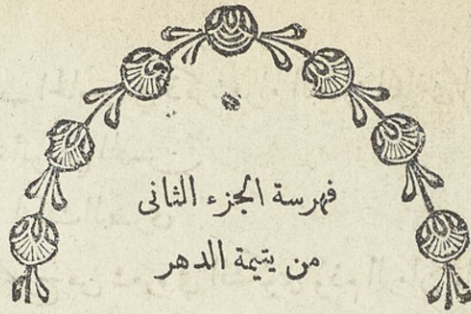 فهرسة الجزء الثانى
من يتيمة الدهر